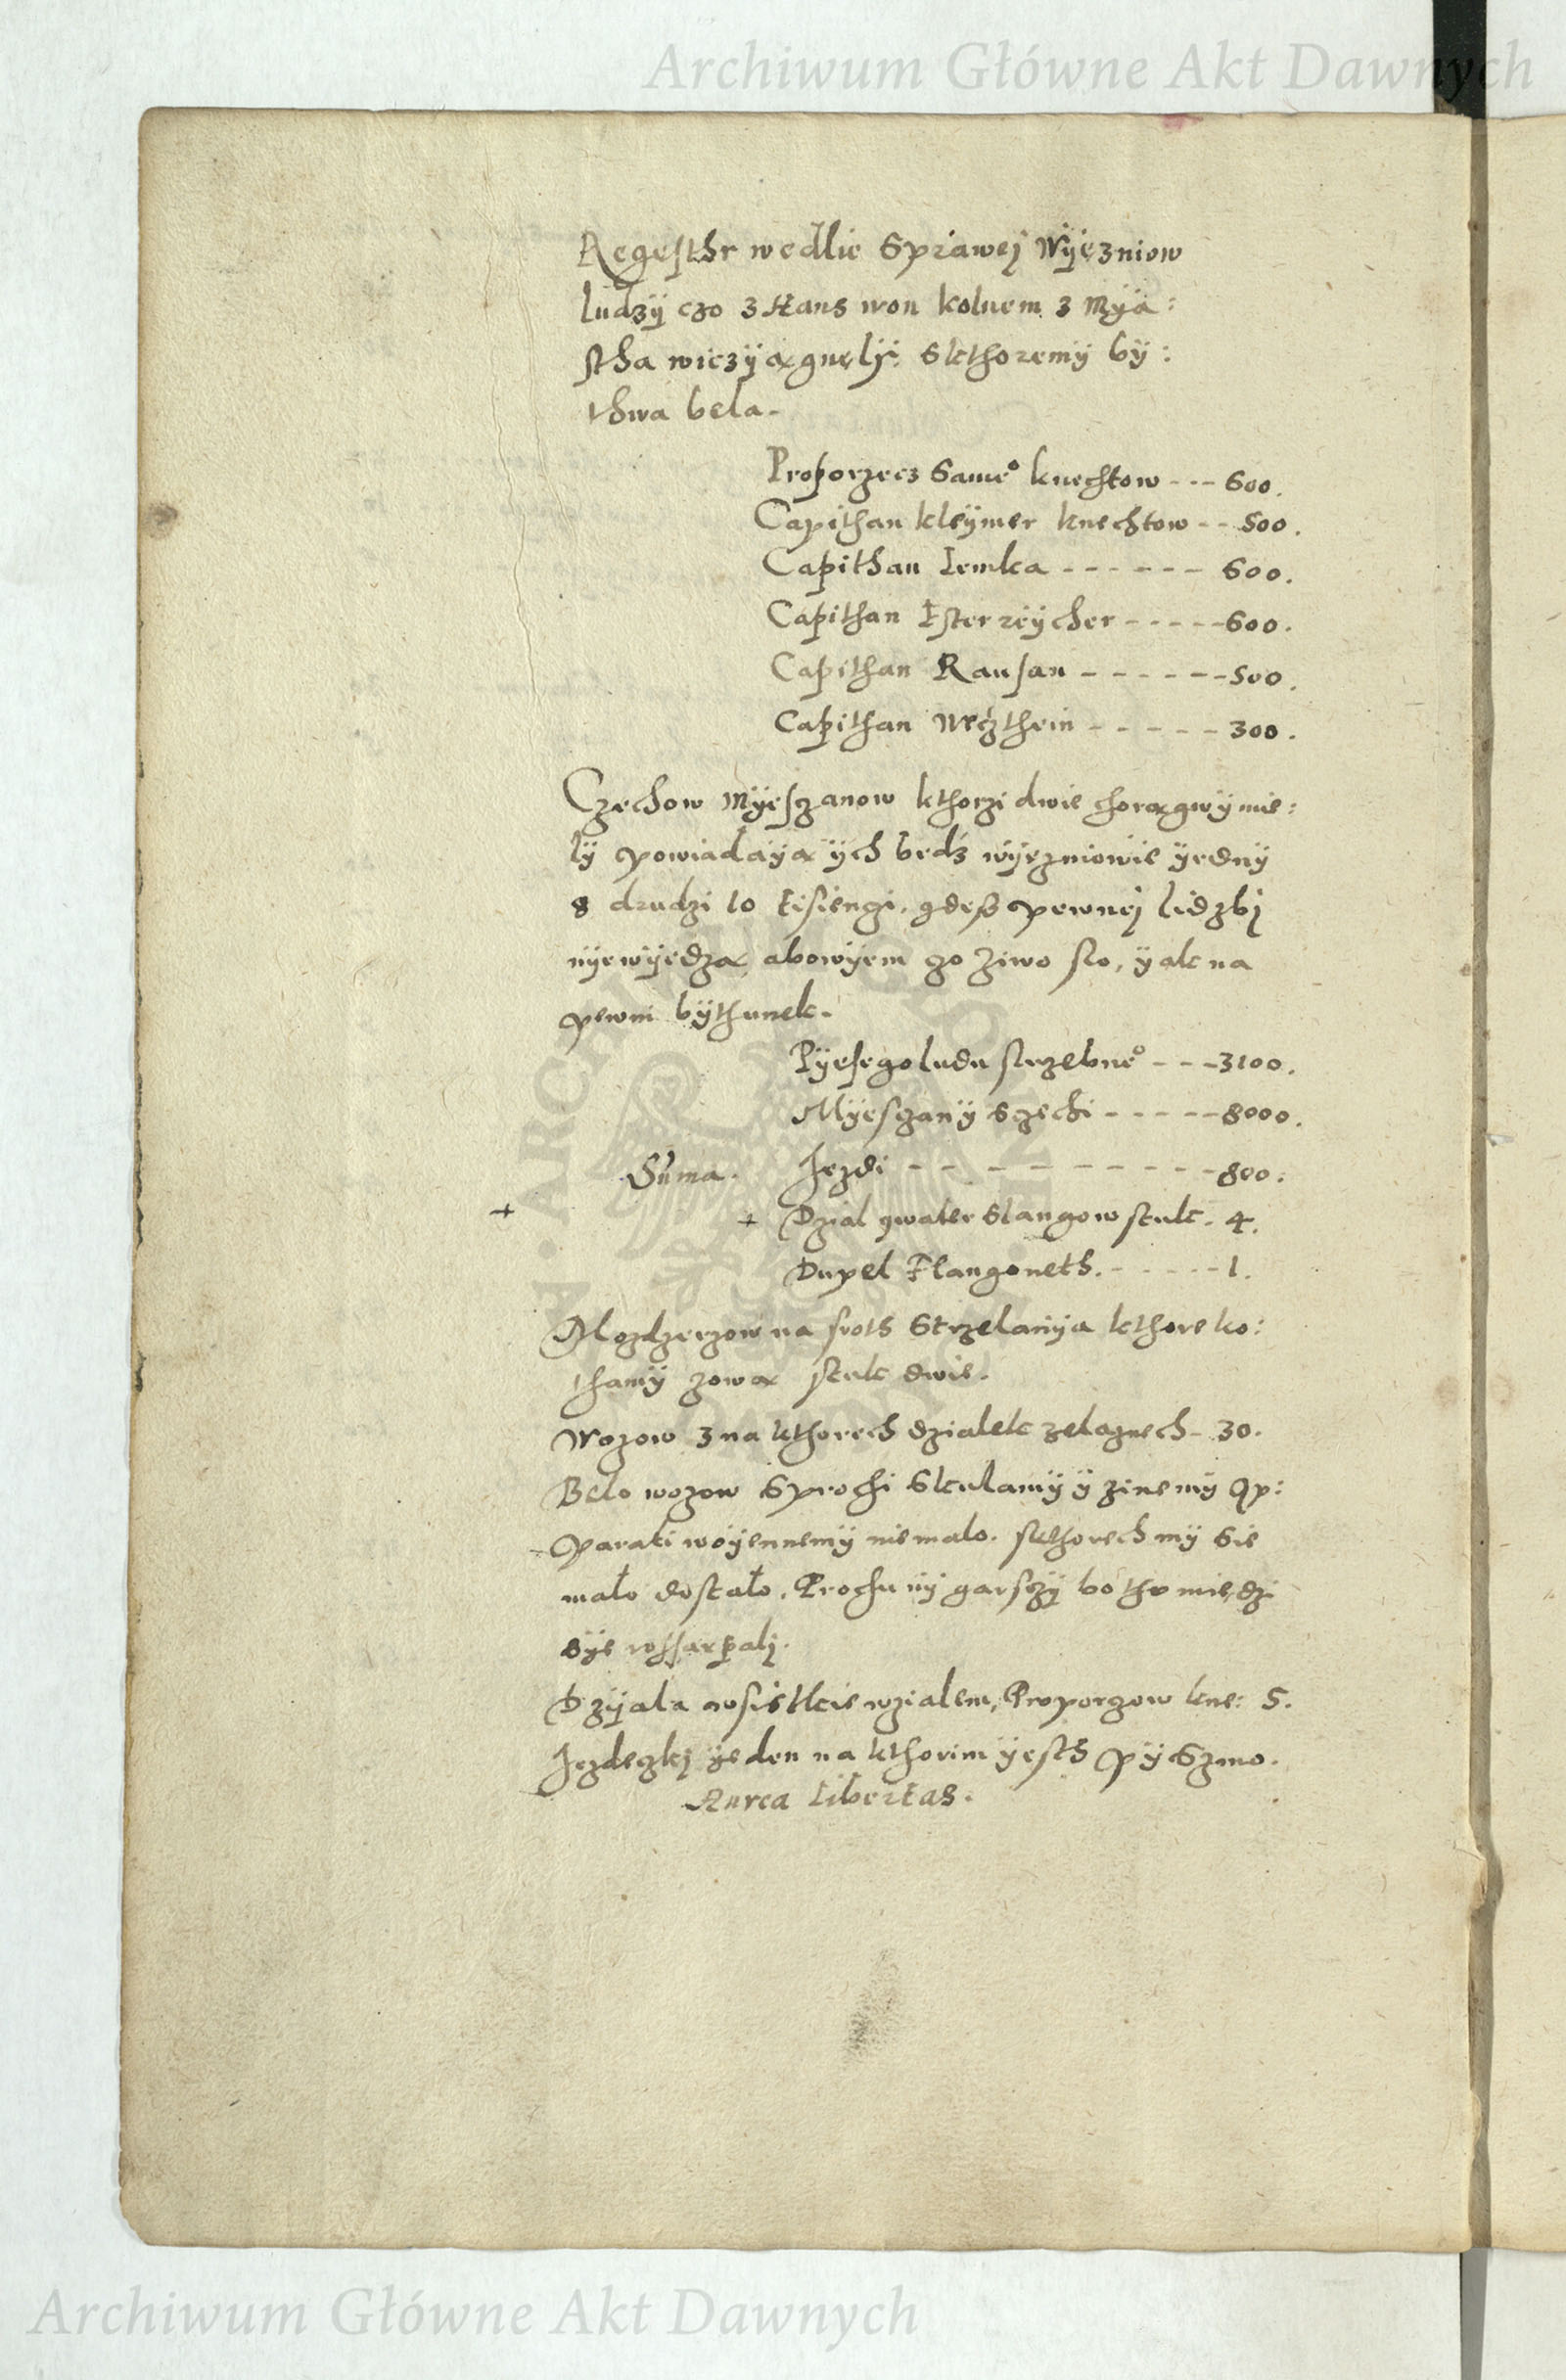 Archiwum Główne Akt Dawnych
Regesthr wedlie Sprawej Wÿęzniow
ludzÿ czo z Hans won kolnem z Mÿa:
stha wiczÿągnęlÿ: Skthoremÿ bÿ:
thwa bela.
Proporzecz Same° knechtow --- 600.
Capithan kleÿmer knechtow -- 500.
Capithan Lemka ------ 600.
Capithan Esterreÿcher ----- 600.
Capithan Rausan ------ 500.
Capithan ----- 300.
Czechow Mÿeszanow kthorzi dwie chorągwÿ mie:
lÿ powiadaÿą ÿch bedz wÿęzniowie ÿednÿ
8 drudzi 10 tisiengi. gdesz pewnej lidzbj
nÿewÿedzą abowÿem zo ziwo slo, ÿak na
pewni bÿthunek.
Pÿesego ludu sluzebne° --- 3100.
Mÿeszanÿ Czechi ----- 8000.
Suma. Jezdi --------- 800.
+ + Dzial qwater Slangow stuk. 4.
Dupel Flangoneth. ----- 1.
Mozdzerzow na srots Strzelanÿa kthore ko:
thamÿ zową stuk dwie.
Wozow z na kthorech dzialek zelaznech - 30.
Belo wozow Sprochi Skulamÿ ÿ zinemÿ Ap:
parati woÿennemÿ niemalo. skthorech mÿ Sie
mało dostało. Prochu nÿ garsczÿ bo tho miedzi
sÿe
Dzÿala wsistkie wzialem, Proporzow kne: 5.
Jezdeczkj ÿeden na kthorim ÿesth pÿSzmo.
Aurea Libertas.
Archiwum Główne Akt Dawnych